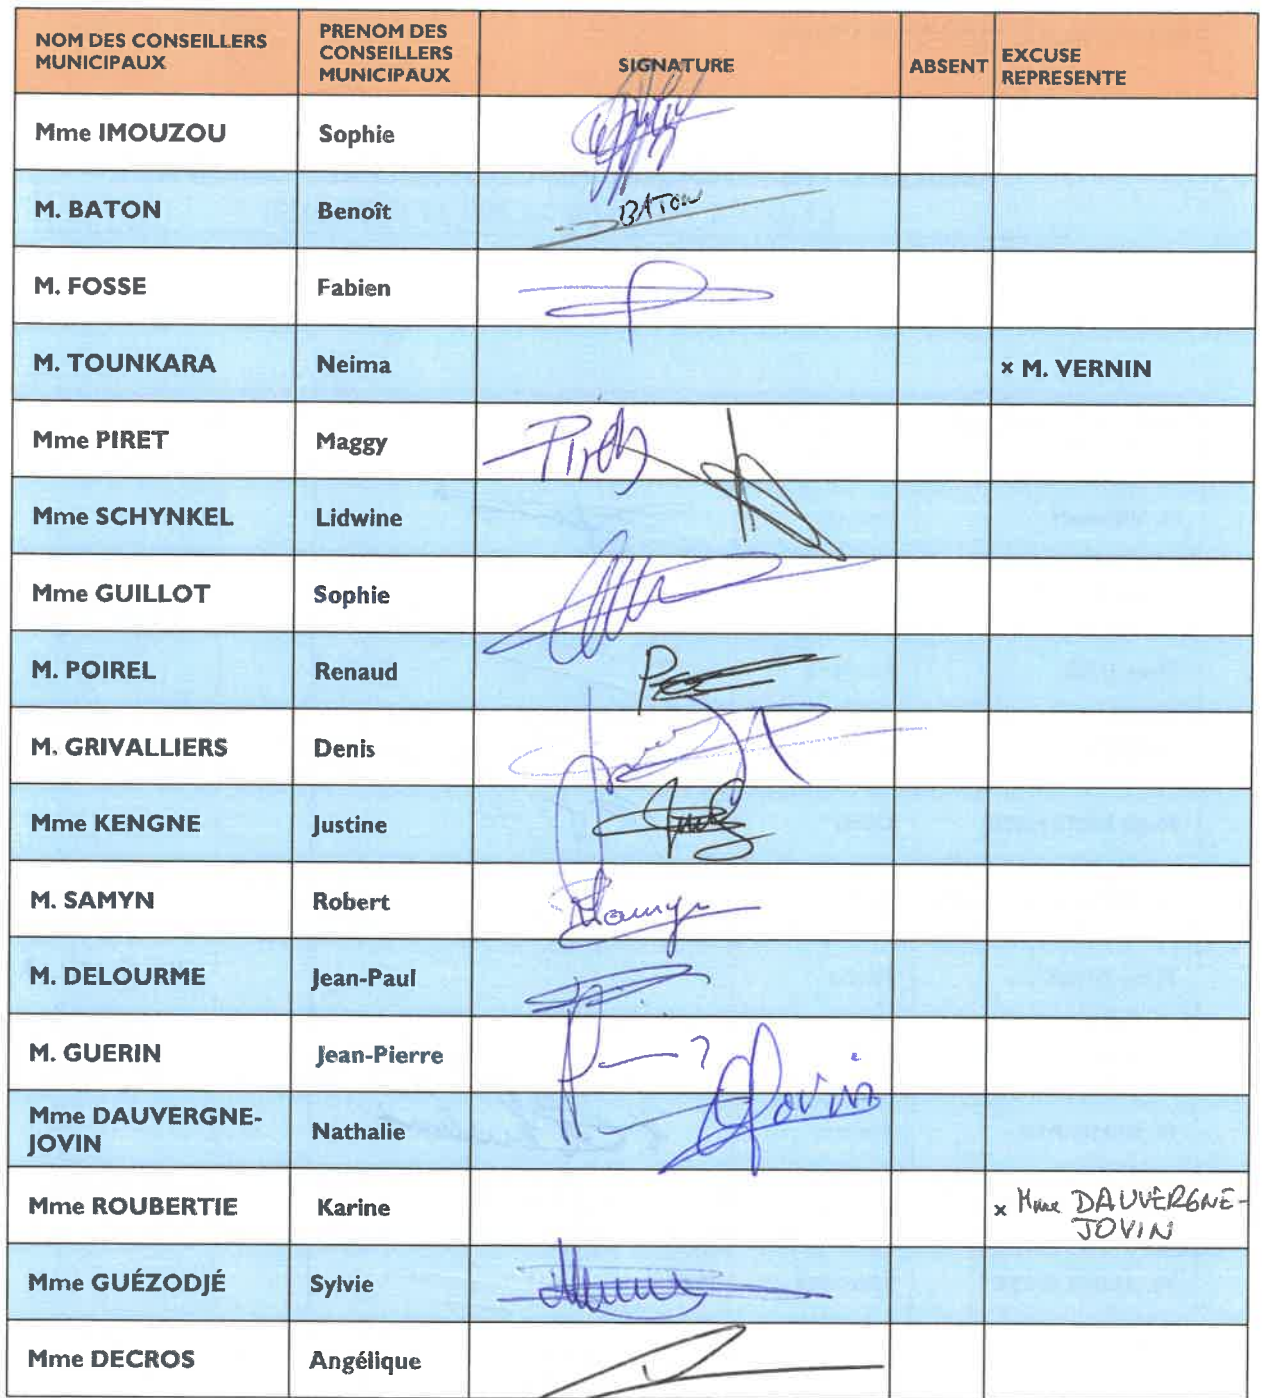 NOM DES CONSEILLERS MUNICIPAUX PRENOM DES CONSEILLERS MUNICIPAUX SIGNATURE ABSENT EXCUSE REPRESENTE
Mme IMOUZOU Sophie
M. BATON Benoît BATON
M. FOSSE Fabien
M. TOUNKARA Neima x M. VERNIN
Mme PIRET Maggy
Mme SCHYNKEL Lidwine
Mme GUILLOT Sophie
M. POIREL Renaud
M. GRIVALLIERS Denis
Mme KENGNE Justine
M. SAMYN Robert Samyn
M. DELOURME Jean-Paul
M. GUERIN Jean-Pierre
Mme DAUVERGNE-
JOVIN Nathalie Jovin
Mme ROUBERTIE Karine x Mme DAUVERGNE-
JOVIN
Mme GUÉZODJÉ Sylvie
Mme DECROS Angélique